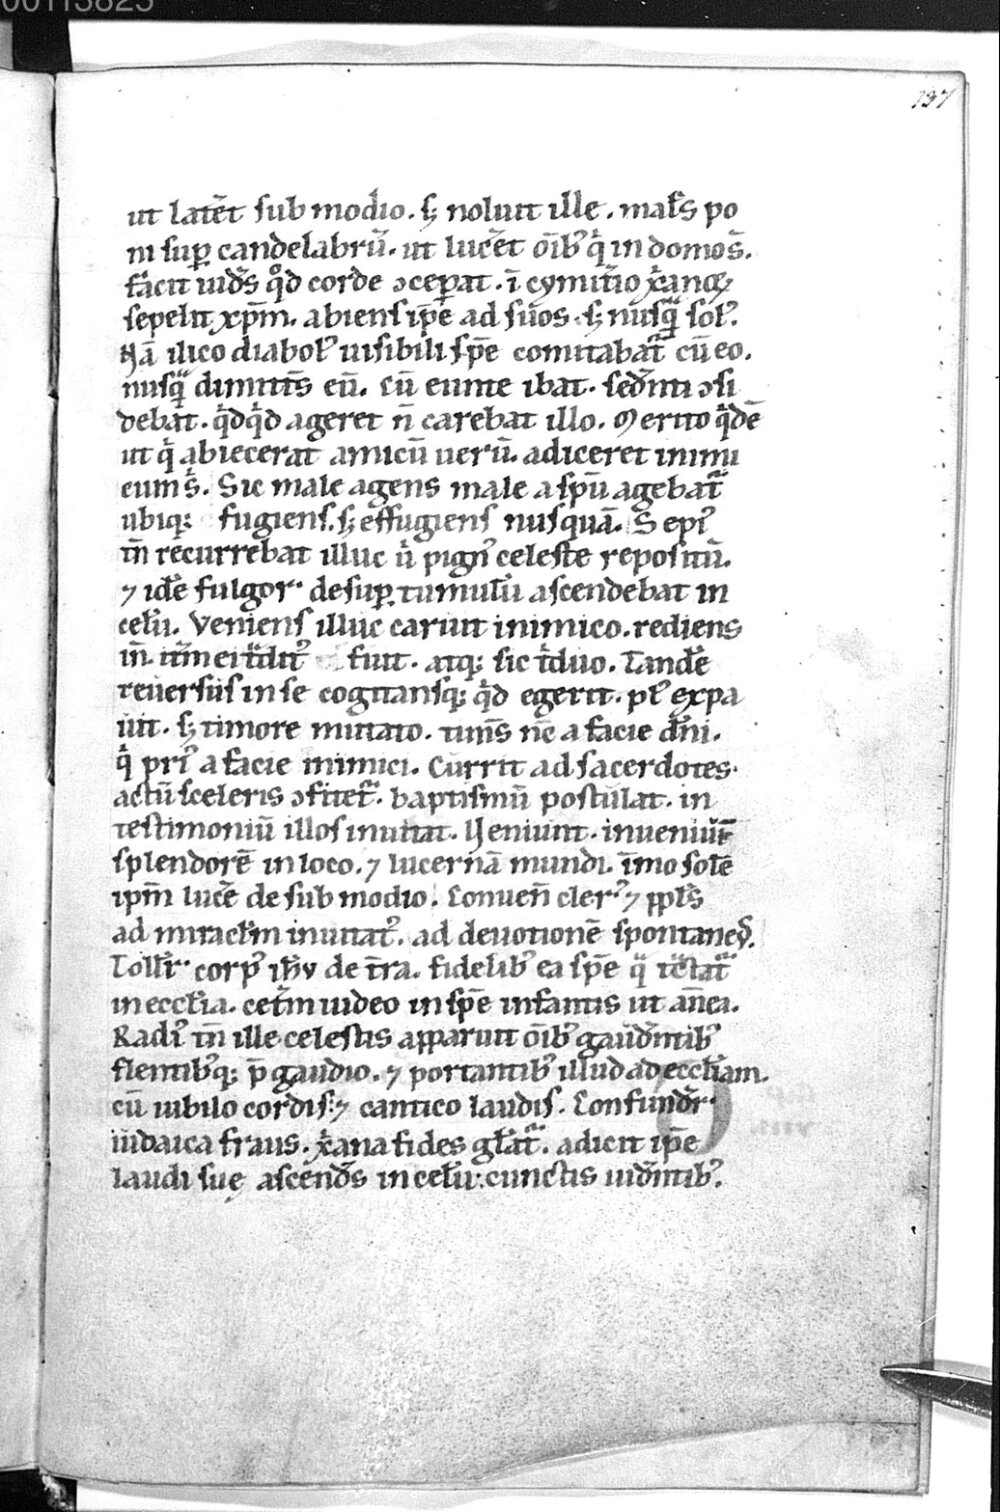 00113825
197
ut latēt sub modio. ꝫ noluit ille. mał̄s po
ni suꝑ candelabrū. ut lucēt oīb᷒ qͥ in domo s̄.
fācit uid̄s qͦd corde ↄceꝑat. ī cymit̄io xͥanoꝝ
sepelit xp̄m. abiens ip̄e ad suos. ꝫ nusqͣ̄ sol᷒.
Nā ilico diabol᷒ uisibili sp̄e comitabat᷑ cū eo.
nusqͣ̄ dimitt̄s eū. Cū eunte ibat. sed̄nti ↄsi
debat. qͥdqͥd ageret n̄ carebat illo. Merito qͥdē
ut qͥ abiecerat amicū uerū. adiceret inimi
cum sͥ. Sic male agens male a spū agebat᷑
ubiqꝫ fugiens. ꝫ effugiens nusquā. Sepi᷒
tn̄ recurrebat illuc uͥ pign᷒ celeste repositū.
⁊ idē fulgor desuꝑ tumulū ascendebat in
celū. Veniens illuc cariut inimico. rediens
in itin̄e fuit. atqꝫ sic tͥduo. Tandē
reuersus in se cogitansqꝫ qͥd egerit. pl᷒ expa
uit. ꝫ timore mutato. tim̄s nc̄ a facie dn̄i.
qͥ pri᷒ a facie inimici. Currit ad sacerdotes.
actū sceleris ↄfitet᷑. baptismū postulat. in
testimoniū illos inuitat. Ueniunt. inueniūt
splendorē in loco. ⁊ lucernā mundi. īmo solē
ipm̄ lucē de sub modio. Conuen̄ cler᷒ ⁊ ppl̄s
ad miracl̄m inuitat᷒. ad deuotionē spontane᷒.
Tollit᷑ corp᷒ ih̄u de t̄ra. fidelib᷒ ea sp̄e qͣ tc̄tat᷑
in eccl̄ia. cet̄m uideo in sp̄e infantis ut an̄ea.
Radi᷒ tn̄ ille celestis apparuit oīb᷒ gaud̄ntib᷒
flentib᷒qꝫ p̄ gaudio. ⁊ portantib᷒ illud ad eccl̄iam.
cū iubilo cordis ⁊ cantico laudis. Confundit᷑
iudaica fraus. xͥana fides gl̄at᷑. adicit ip̄e
laudi sue ascend̄s in celū cunctis uid̄ntib᷒.